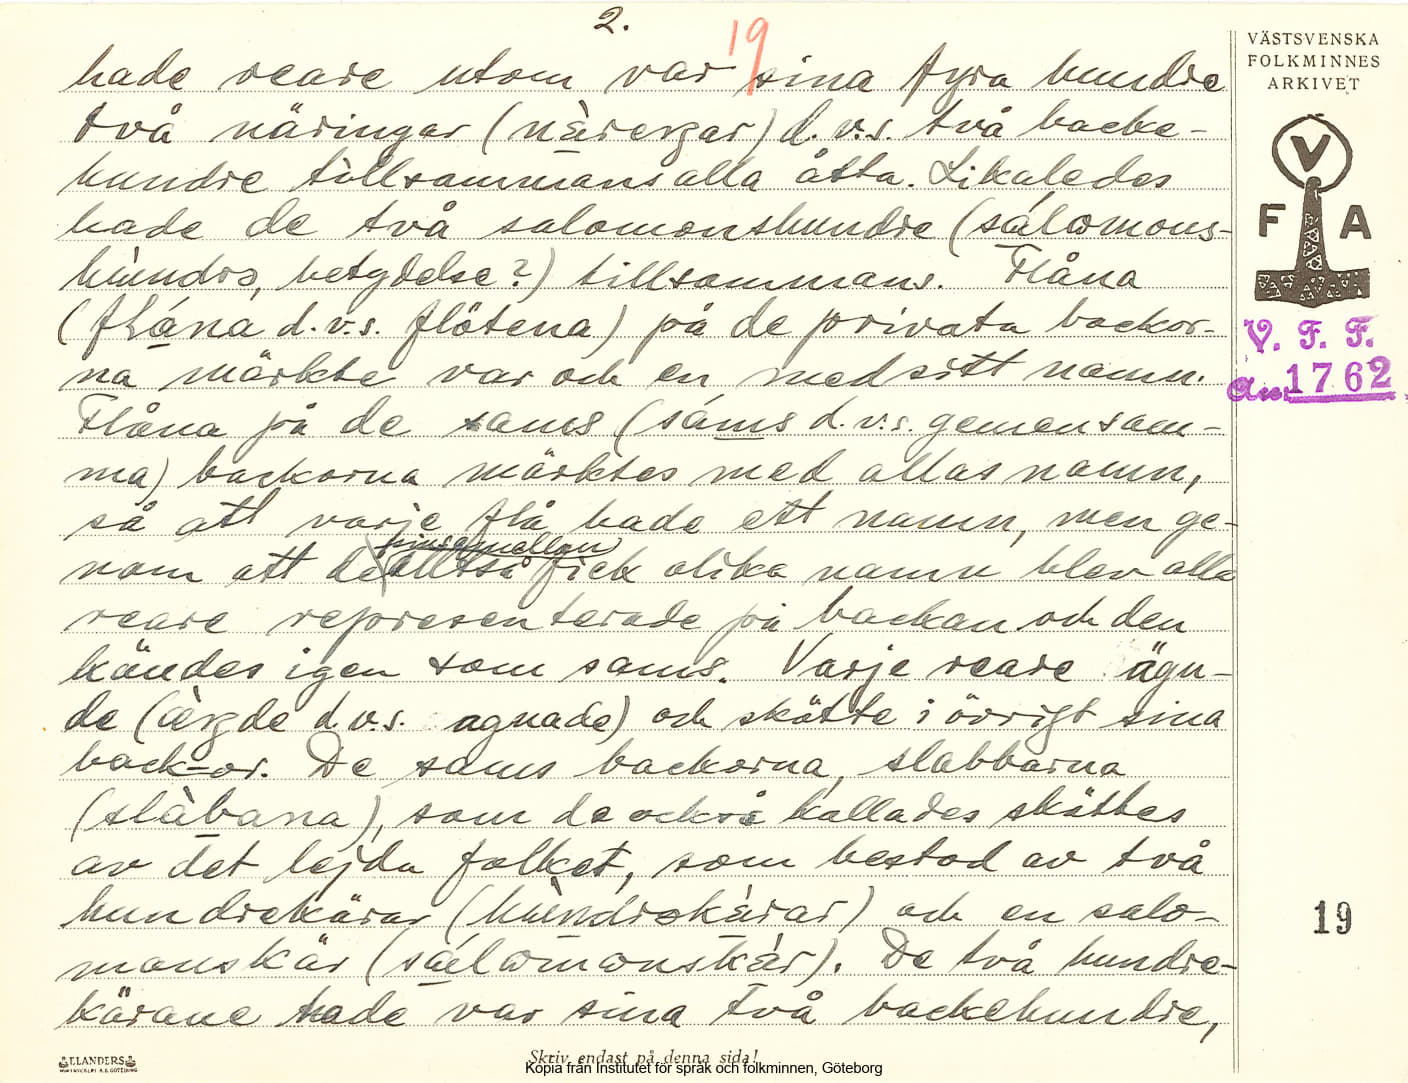 2.
19
hade reare utom var sina fyra hundre
två näringar (nàrengar) d.v.s. två backe-
hundre tillsammans alla åtta. Likaledes
hade de två salomonshundre (sálomons-
hùndrə, betydelse?) tillsammans. Flåna
(flåna d.v.s. flötena) på de privata backor-
na märkte var och en med sitt namn.
Flåna på de sams (sáms d.v.s. gemensam-
ma) backorna märktes med allas namn,
så att varje flå hade ett namn, men ge-
sinsemellan
nom att de alltså fick olika namn blev alla
reare representerade på backan och den
kändes igen som sams. Varje reare ägn-
de (ængde d.v.s. agnade) och skötte i övrigt sina
backor. De sams backorna, slabbarna
(slàbana), som de också kallades sköttes
av det lejda folket, som bestod av två
hundrekärar (hùndrəkärar) och en salo-
monskär (sálomonskär). De två hundre-
kärane hade var sina två backehundre,
VÄSTSVENSKA
FOLKMINNES
ARKIVET
V
F A
V. F. F.
1762
19
ELANDERS
Skriv endast på denna sida!
Kopia från Institutet för språk och folkminnen, Göteborg